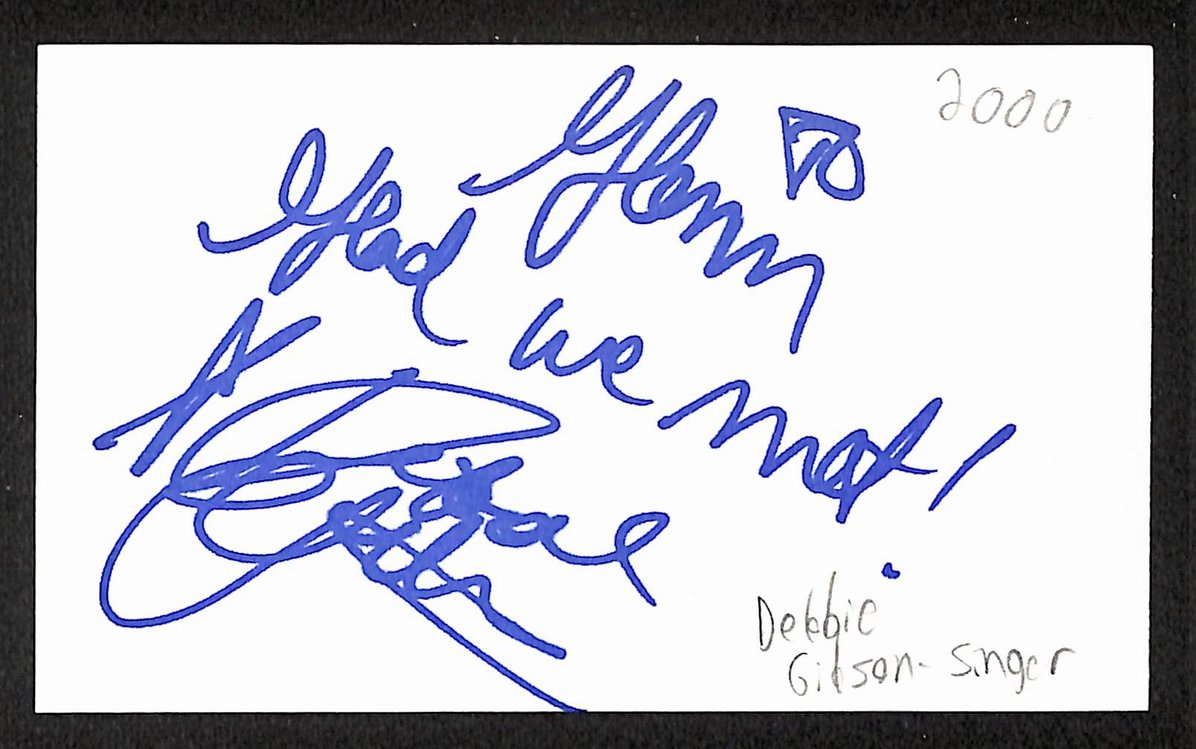 2000
Glenn
Glad we met!
Debbie
Gibson - Singer